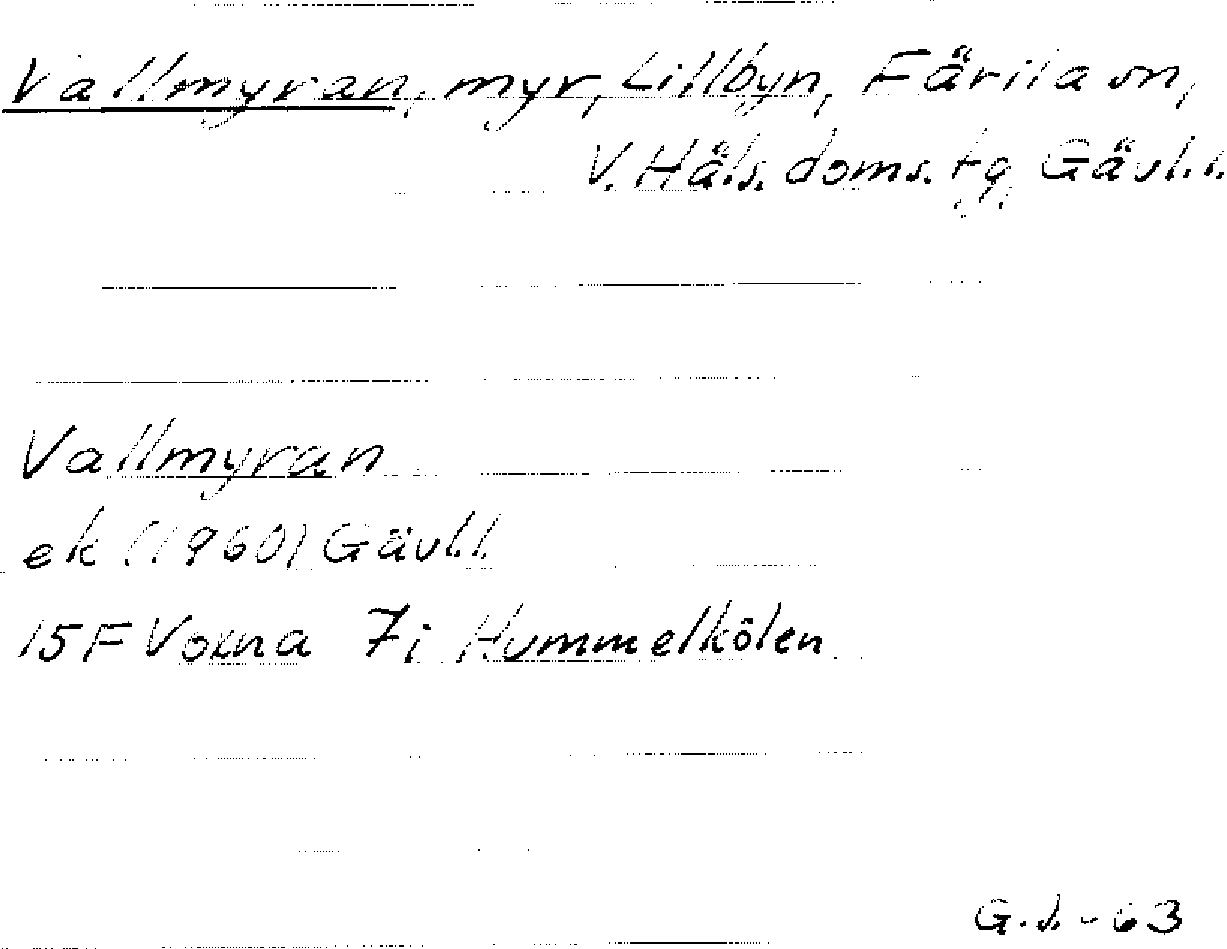 Vallmyran, myr, Lillbyn, Färila sn,
V. Häls. doms. tg, Gävl.l.
Vallmyran
ek (1960) Gävl.l.
15F Voxna 7i Hummelkölen
G.S-63